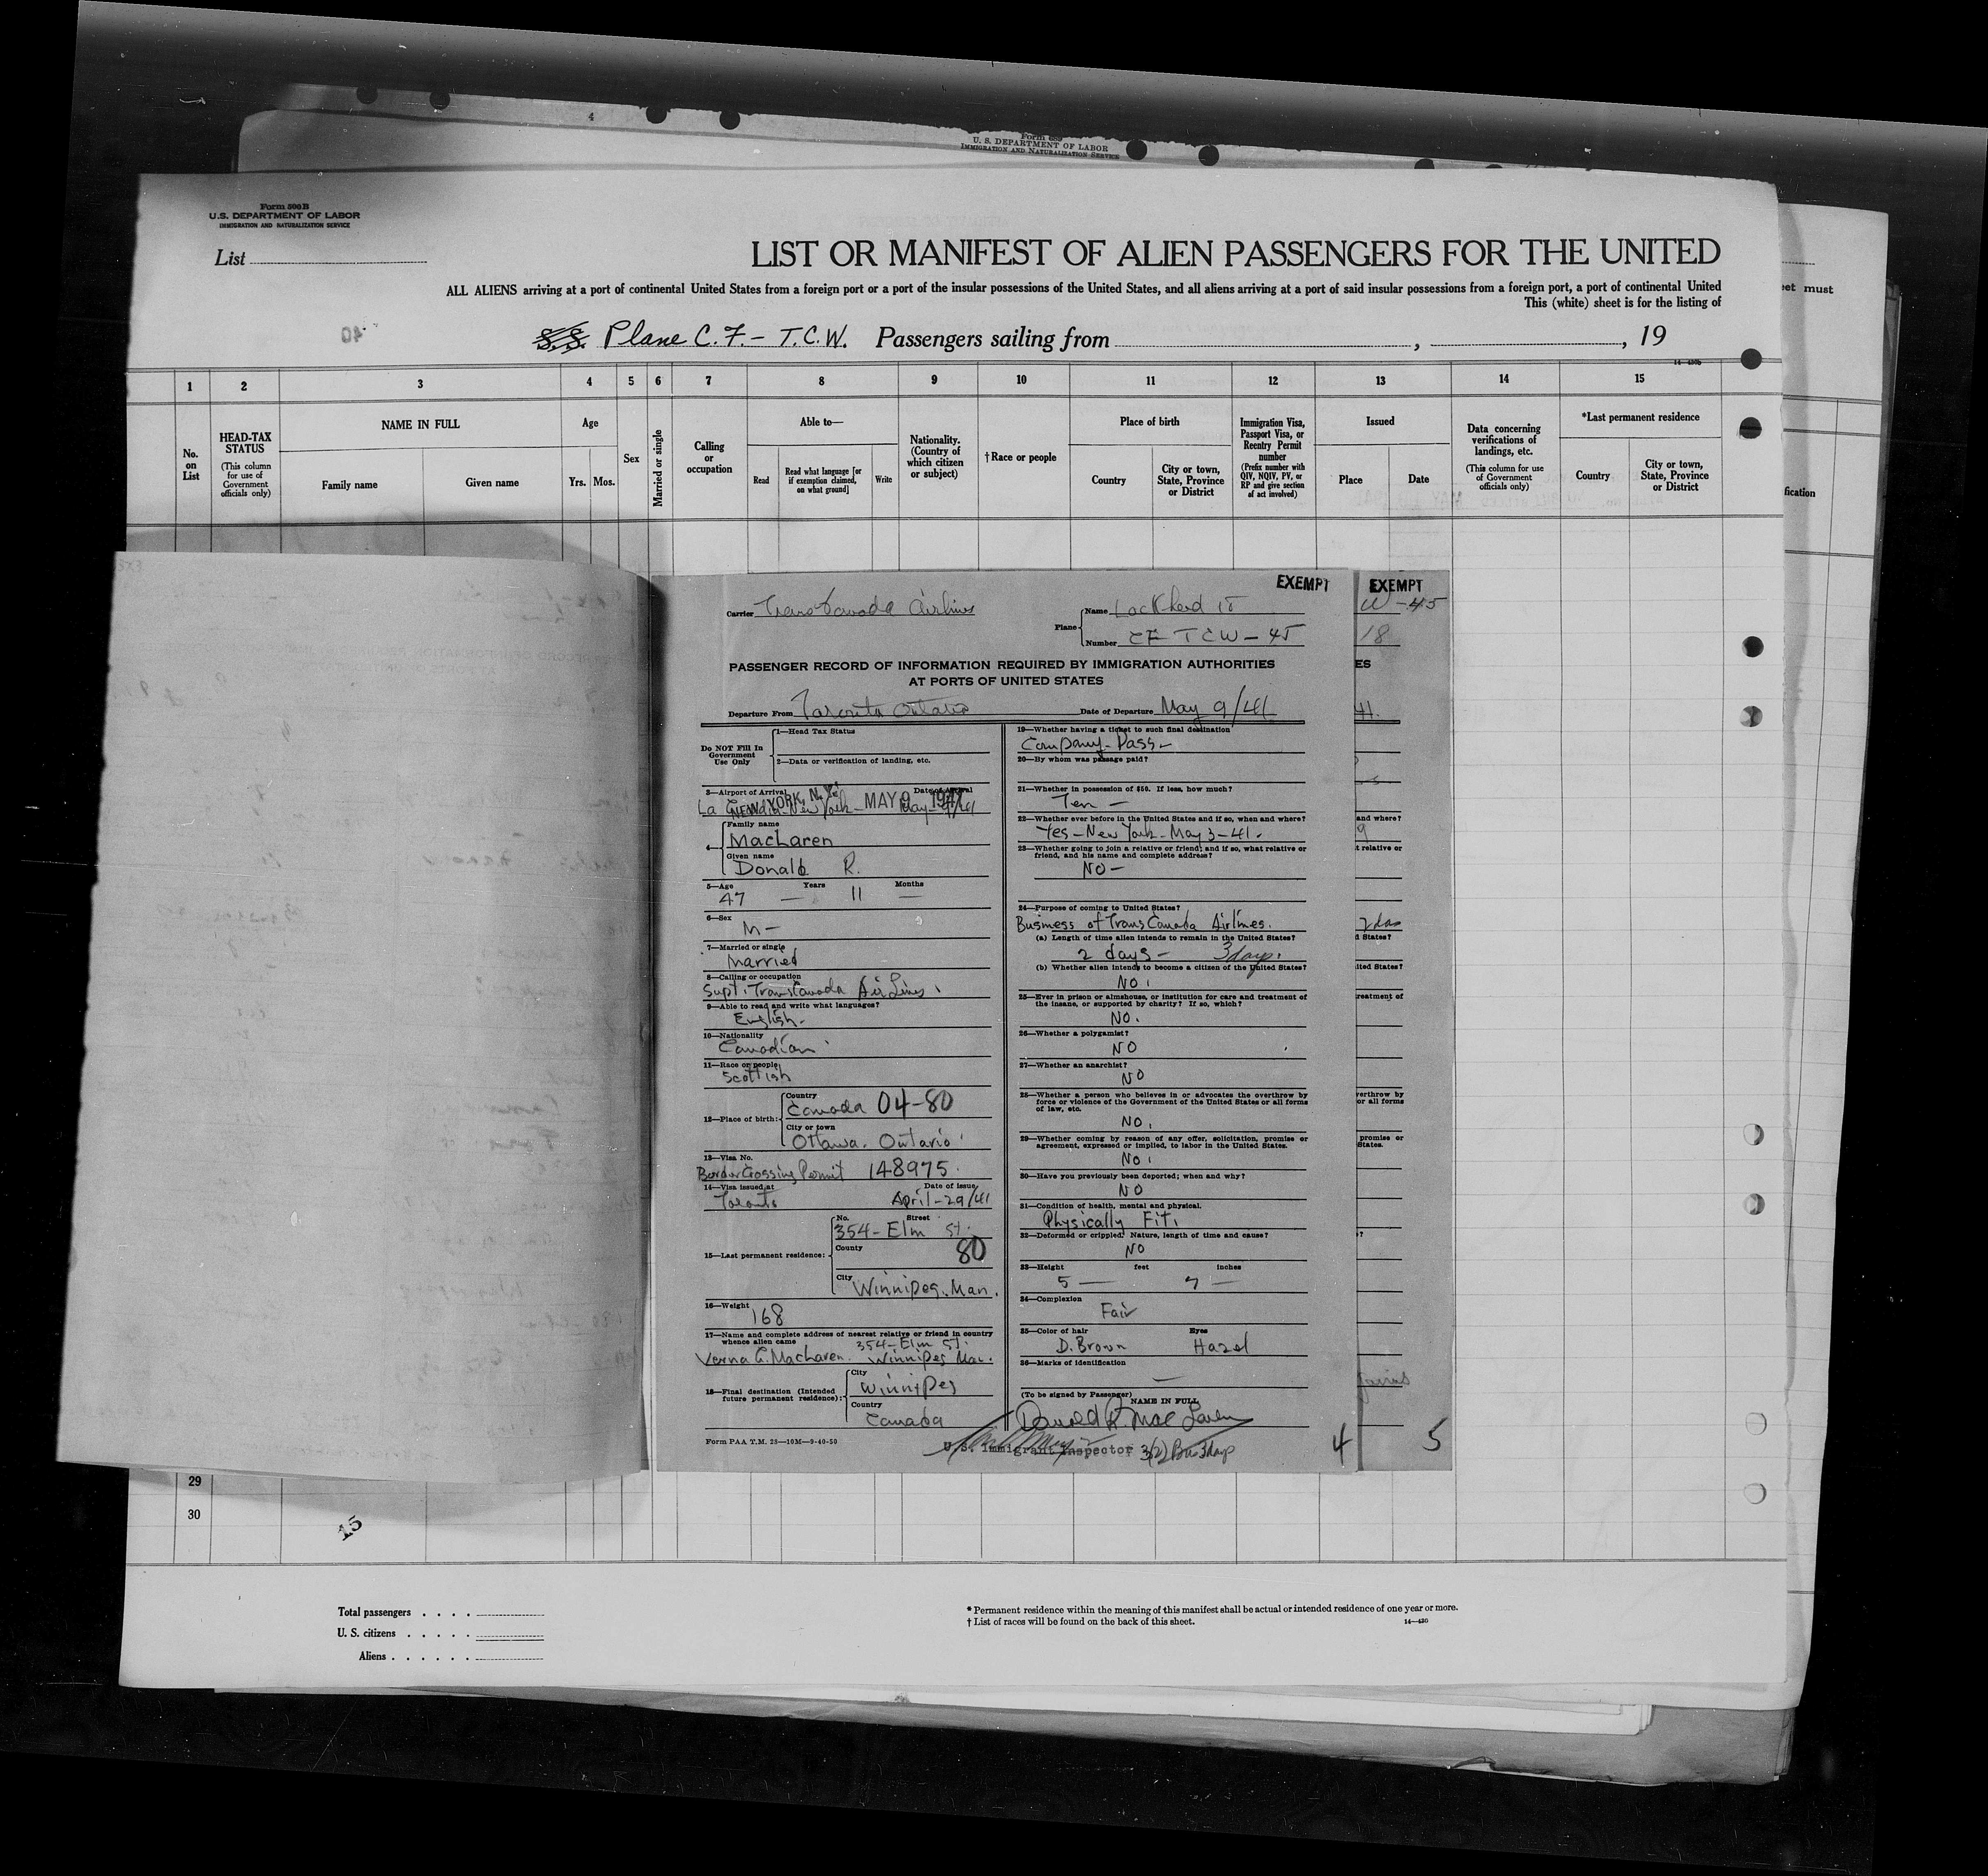 4
Form 689
U. S. DEPARTMENT OF LABOR
IMMIGRATION AND NATURALIZATION SERVICE
Form 500B
U.S. DEPARTMENT OF LABOR
IMMIGRATION AND NATURALIZATION SERVICE
List
LIST OR MANIFEST OF ALIEN PASSENGERS FOR THE UNITED
ALL ALIENS arriving at a port of continental United States from a foreign port or a port of the insular possessions of the United States, and all aliens arriving at a port of said insular possessions from a foreign port, a port of continental United
This (white) sheet is for the listing of
eet must
40
S.S. Plane C.F.- T.C.W. Passengers sailing from , , 19
1 2 3 4 5 6 7 8 9 10 11 12 13 14 15
No. on List
HEAD-TAX STATUS
(This column for use of Government officials only)
NAME IN FULL
Family name
Given name
Age
Yrs. Mos.
Sex
Married or single
Calling or occupation
Able to—
Read
Read what language [or if exemption claimed, on what ground]
Write
Nationality. (Country of which citizen or subject)
†Race or people
Place of birth
Country
City or town, State, Province or District
Immigration Visa, Passport Visa, or Reentry Permit number
(Prefix number with QIV, NQIV, PV, or RP and give section of act involved)
Issued
Place
Date
Data concerning verifications of landings, etc.
(This column for use of Government officials only)
*Last permanent residence
Country
City or town, State, Province or District
fication
EXEMPT
EXEMPT
Carrier Trans Canada Airlines
Plane
Name Lockheed 18
Number CF TCW - 45
W-45
18
PASSENGER RECORD OF INFORMATION REQUIRED BY IMMIGRATION AUTHORITIES
AT PORTS OF UNITED STATES
ES
Departure From Toronto Ontario Date of Departure May 9/41
41.
Do NOT Fill In Government Use Only
1—Head Tax Status
2—Data or verification of landing, etc.
3—Airport of Arrival Date of Arrival
La Guardia - New York - May - 9/41
NEW YORK, N.Y. MAY 9 1941
4—
Family name
MacLaren
Given name
Donald R.
5—Age Years Months
47 — 11 —
6—Sex
M-
7—Married or single
Married
8—Calling or occupation
Supt. Trans Canada Air Lines.
9—Able to read and write what languages?
English-
10—Nationality
Canadian
11—Race or people
Scottish
12—Place of birth:
Country
Canada 04-80
City or town
Ottawa. Ontario
13—Visa No.
Border Crossing Permit 148975.
14—Visa issued at Date of issue
Toronto April-29/41
15—Last permanent residence:
No. Street
354- Elm St.
County
80
City
Winnipeg. Man.
16—Weight
168
17—Name and complete address of nearest relative or friend in country
whence alien came
354-Elm St.
Verna G. MacLaren. Winnipeg Man.
18—Final destination (Intended future permanent residence):
City
Winnipeg
Country
Canada
19—Whether having a ticket to such final destination
Company-Pass-
20—By whom was passage paid?
21—Whether in possession of $50. If less, how much?
Ten -
22—Whether ever before in the United States and if so, when and where?
Yes-New York-May 3-41.
23—Whether going to join a relative or friend; and if so, what relative or
friend, and his name and complete address?
NO-
24—Purpose of coming to United States?
Business of Trans Canada Airlines.
(a) Length of time alien intends to remain in the United States?
2 days- 3 days.
(b) Whether alien intends to become a citizen of the United States?
NO.
25—Ever in prison or almshouse, or institution for care and treatment of
the insane, or supported by charity? If so, which?
NO.
26—Whether a polygamist?
NO
27—Whether an anarchist?
NO
28—Whether a person who believes in or advocates the overthrow by
force or violence of the Government of the United States or all forms
of law, etc.
NO.
29—Whether coming by reason of any offer, solicitation, promise or
agreement, expressed or implied, to labor in the United States.
NO.
30—Have you previously been deported; when and why?
NO
31—Condition of health, mental and physical.
Physically Fit.
32—Deformed or crippled. Nature, length of time and cause?
NO
33—Height feet inches
5 — 7 —
34—Complexion
Fair
35—Color of hair Eyes
D. Brown Hazel
36—Marks of identification
—
(To be signed by Passenger) NAME IN FULL
Donald R. MacLaren
Form PAA T.M. 28—10M—9-40-50
U.S. Immigrant Inspector 3(2) Bus 3 days
4
5
and where?
9
t relative or
2 das
d States?
ited States?
reatment of
verthrow by
or all forms
promise or
States.
?
29
30
15
Total passengers . . . .
U. S. citizens . . . . .
Aliens . . . . . .
* Permanent residence within the meaning of this manifest shall be actual or intended residence of one year or more.
† List of races will be found on the back of this sheet.
14—430